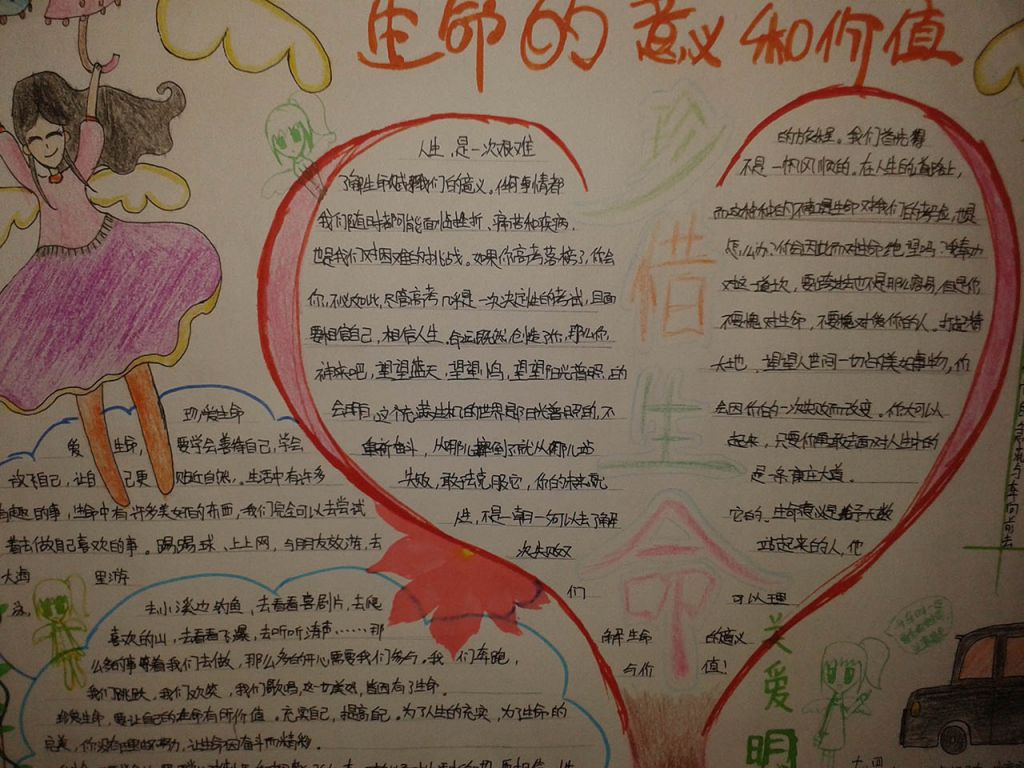 生命的意义和价值
珍
惜
生
命
人生，是一次艰难
的旅程。我们首先得
了解生命赋予我们的意义。任何事情都
不是一帆风顺的。在人生的道路上，
我们随时都可能面临挫折、痛苦和疾病，
而这种种的不幸是生命对我们的考验，也是
也是我们对困难的挑战。如果你高考落榜了，你会
怎么办？你会因此而对生命绝望吗？
你，不必如此，尽管高考几乎是一次决定性的考试，且面
对这一道坎，要跨过去也不是那么容易，但是你
要相信自己，相信人生。命运既然创造了你，那么你，
不要愧对生命，不要愧对爱你的人。打起精
神来吧，望望蓝天，望望 鸟，望望阳光普照的
大地，望望人世间一切的美好事物，你
会明白这个充满生机的世界是阳光普照的，不
会因你的一次失败而改变。你大可以
重新奋斗，从哪儿摔倒了就从哪儿站
起来，只要你勇敢去面对人生中的
失败，敢于克服它，你的未来就
是一条康庄大道。
人生，不是朝一夕可以去了解
它的。生命意义是给予失败
次失败又
站起来的人，他
们
可以理
解生命
的意义
与价
值！
珍爱生命
爱 生命， 要学会善待自己，学会
放下自己，让自己更 贴近自然。生活中有许多
有趣的事，生命中有许多美好的东西，我们完全可以去尝试
着去做自己喜欢的事。踢踢球，上上网，与朋友散游，去
大海 里游
泳，
去小溪边钓鱼，去看看喜剧片，去爬
喜欢的山，去看看飞瀑，去听听涛声……那
么多的事等着我们去做，那么多的开心需要我们参与，我们奔跑，
我们跳跃，我们欢笑，我们歌唱，这一切美妙，皆因有了生命。
珍爱生命，要让自己的生命有所价值。充实自己，提高自己。为了人生的充实，为了生命的
完美，你没有理由不努力，让生命因奋斗而精彩。
关
爱
明